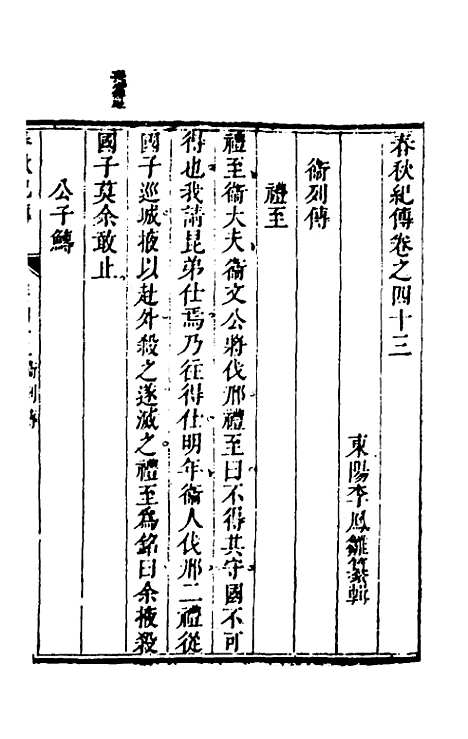 春秋紀傳卷之四十三
東陽李鳳雛纂輯
衞列傳
禮至
禮至衞大夫衞文公將伐邢禮至曰不得其守國不可
得也我請昆弟仕焉乃往得仕明年衞人伐邢二禮從
國子巡城掖以赴外殺之遂滅之禮至爲銘曰余掖殺
國子莫余敢止
公子鱄